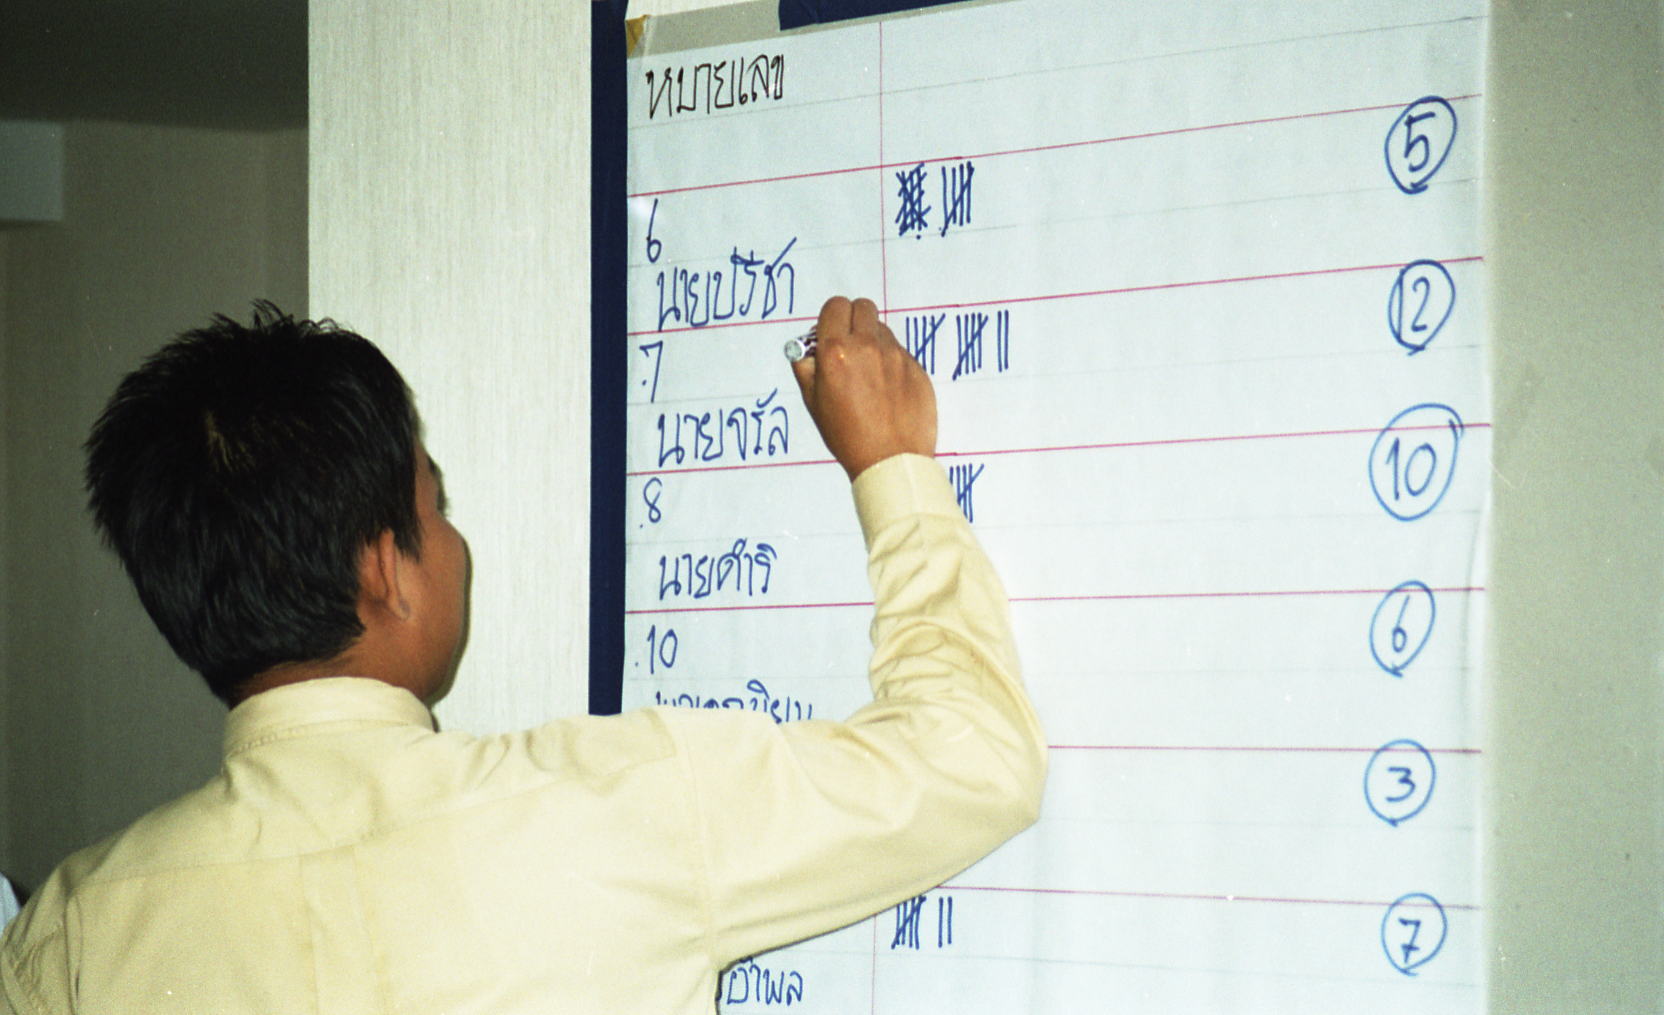 หมายเลข
6
นายปรีชา
5
.7
นายจรัล
12
.8
นายดำริ
10
.10
6
3
อำพล
7